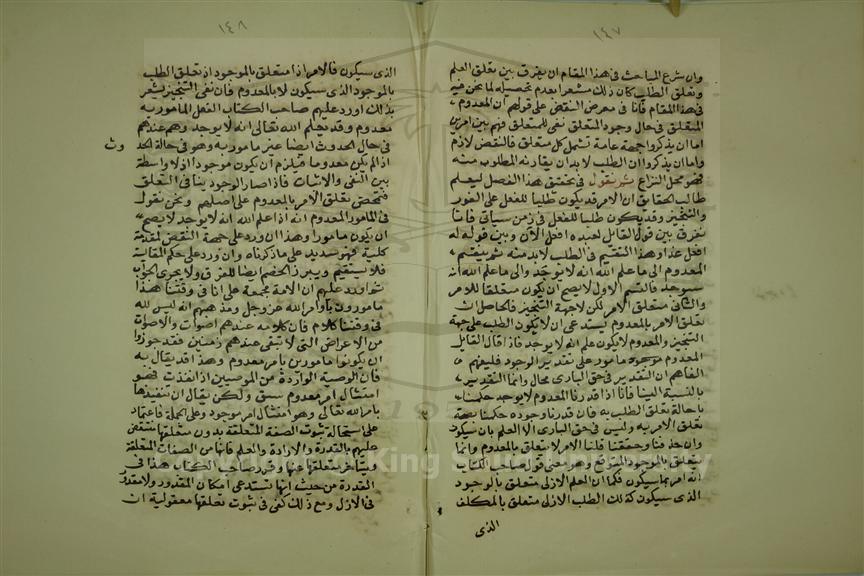 ١٤٧
وان شرع المباحث فى هذا المقام ان يفرق بين تعلق العلم
وتعلق الطلب كان ذلك مشعرا بعدم تحصيله لما نحن فيه
فى هذا المقام فانا فى معرض النقض على قولهم ان المعدوم
المتعلق فى حال وجود المتعلق نفى للمتعلق فهم بين امرين
اما ان يذكروا جهة عامة تشمل كل متعلق فالنقض لازم
واما ان يذكروا ان الطلب لا بد ان يقارنه المطلوب منه
فهو محل النزاع ثم نقول فى تحقيق هذا الفصل ليعلم
طالب الحقايق ان الامر قد يكون طلبا للفعل على الفور
والتنجيز وقد يكون طلبا للفعل فى زمن سياتى فانا
نفرق بين قول القايل لعبده افعل الآن وبين قوله له
افعل غدا وهذا التقسيم فى الطلب لا بد منه ثم ينقسم
المعدوم الى ما علم الله انه لا يوجد والى ما علم الله انه
سيوجد فالقسم الاول لا يصح ان يكون متعلقا للامر
والثانى متعلق الامر لكن لا جهة التنجيز فالحاصل ان
تعلق الامر بالمعدوم يستدعى ان لا يكون الطلب على جهة
التنجيز والمعدوم لا يكون علم الله انه لا يوجد فاذا قال القايل
المعدوم مامور على تقدير الوجود فليفهم
الفاهم ان التقدير فى حق البارى محال وانما التقدير
بالنسبة الينا فانا اذا قدرنا المعدوم لا يوجد حكمنا
باحالة تعلق الطلب به فان قدرنا وجوده حكمنا بصحة
تعلق الامر به وليس فى حق البارى الا العلم بان سيكون
وان حذفنا وحققنا قلنا الامر لا يتعلق بالمعدوم وانما
يتعلق بالموجود المتوقع وهو معنى قول صاحب الكتاب
انه امر بما سيكون فكما ان العلم الازلى متعلق بالوجود
الذى سيكون كذلك الطلب الازلى متعلق بالمكلف
الذى
١٤٨
الذى سيكون فالامر اذا متعلق بالموجود اذ تعلق الطلب
بالموجود الذى سيكون لا بالمعدوم فان نفى التنجيز يشعر
بذلك اورد عليهم صاحب الكتاب الفعل المامور به
معدوم وقد يعلم الله تعالى انه لا يوجد وهم عندهم
فى حال الحدوث ايضا غير مامور به وهو فى حالة الحد
وث
اذ الم يكن معدوما فيلزم ان يكون موجودا اذ لا واسطة
بين النفى والاثبات فاذا صار الوجود ينافى التعلق
فتمحض تعلق الامر بالمعدوم على اصلهم ونحن نقول
فى المامور المعدوم انه اذا علم الله انه لا يوجد لا يصح
ان يكون مامورا وهذا ان ورد على جهة النقض لمقدمة
كلية فهو سديد على ما ذكرناه وان ورد على حكم المقابلة
فلا يستقيم ويبرز الخصم ايضا للفرق ولا يجرى الجواب
ثم اورد عليهم ان الامة مجمعة على انا فى وقتنا هذا
مامورون باوامر الله عز وجل ومذهبهم انه ليس لله
فى وقتنا كلام فان كلامه عندهم اصوات والاصوات
من الاعراض التى لا تبقى عندهم زمنين فقد جوزوا
ان يكونوا مامورين بامر معدوم وهذا قد يقال به
فان الوصية الواردة من الموصيين اذا نفذت فهو
امتثال امر معدوم سبق ولكن يقال ان تنفيذها
بامر الله تعالى وهو امتثال امر موجود وعلى الجملة فاعتماد
على استحالة ثبوت الصفة المتعلقة بدون متعلقها منتقض
عليهم بالقدرة والارادة والعلم فانها من الصفات المتعلقة
ويتاخر متعلقها عنها وقرر صاحب الكتاب هذا فى
القدرة من حيث انها تستدعى امكان المقدور ولا مقدور
فى الازل ومع ذلك كفى فى ثبوت تعلقها معقولية ان
King Saud University
1957